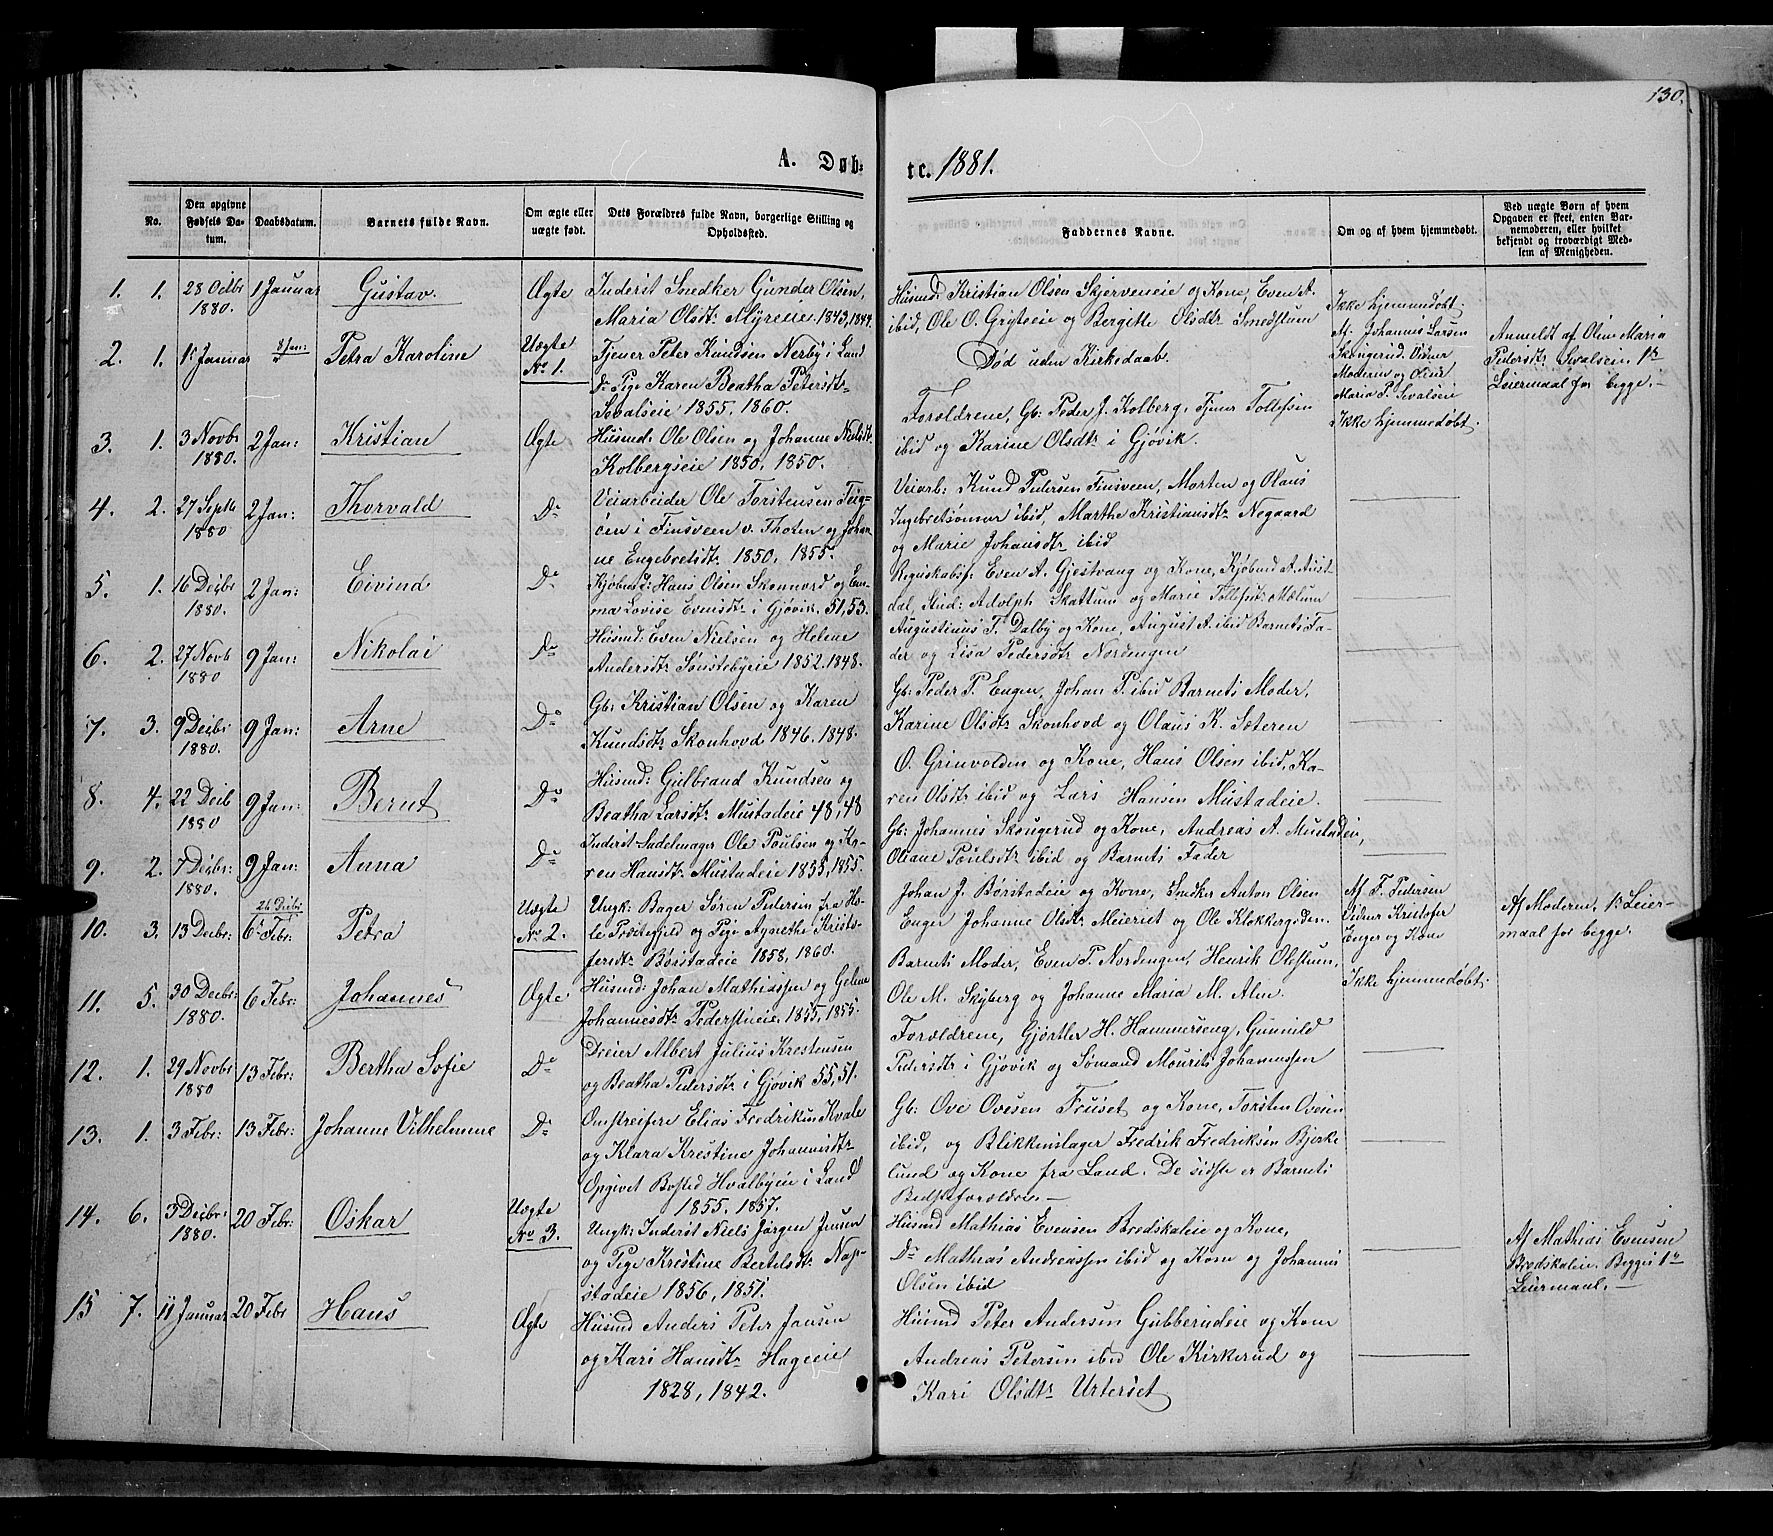 130.
A. Døb-
te. 1881.
No.
Den opgivne Fødsels Datum.
Daabsdatum.
Barnets fulde Navn.
Om ægte eller uægte født.
Dets Forældres fulde Navn, borgerlige Stilling og Opholdssted.
Faddernes Navne.
Om og af hvem hjemmedøbt.
Ved uægte Børn af hvem Opgaven er skeet, enten Barnemoderen, eller hvilket bekjendt og troværdigt Medlem af Menigheden.
1. 1. 28 Octbr 1880. 1 Januar Gustav. Ægte
Inderst Snedker Gunder Olsen,
Maria Olsdtr Myreeie. 1843, 1844.
Husmd Kristian Olsen Skjerveneie og Kone, Even A.
ibid, Ole O. Grytseie og Bergitte Olsdtr Smedstuen
Ikke hjemmedøbt.
2. 1. 1 Januar 8 Jan: Petra Karoline Uægte No 1.
Tjener Peter Knudsen Nerby i Land
Do Pige Karen Beatha Petersdtr
Sevalseie 1855, 1860.
Død uden Kirkedaab.
Af Johannes Larsen
Skougerud. Vidner
Moderen og Oline
Maria P. Sevalseie
Anmeldt af Oline Maria
Pedersdtr Sevalseie. 1ste
Leiermaal for begge.-
3. 1. 3 Novbr 1880. 2 Jan: Kristian Ægte
Husmd: Ole Olsen og Johanne Nielsdtr
Kolbergseie 1850, 1850.
Forældrene, Gb: Peder J. Kolberg, Tjener Tollefsen
ibid og Karine Olsdtr i Gjøvik.
Ikke hjemmedøbt.
4. 2. 27 Septb 1880 2 Jan: Thorvald Do
Veiarbeider Ole Torstensen Teig-
en i Finsveen v. Thoten og Johan-
ne Engebretsdtr 1850, 1855.
Veiarb: Knud Pedersen Finsveen, Morten og Olaus
Ingebretsønner ibid, Marthe Kristiansdtr Nøgaard
og Marie Johansdtr ibid
5. 1. 16 Decbr 1880. 2 Jan: Eivind Do
Kjøbmd: Hans Olsen Skonnord og Em-
ma Lovise Evensdtr i Gjøvik. 51, 53.
Regnskabsf. Even A. Gjestvang og Kone, Kjøbmd A. Aust-
dal, Stud: Adolph Skattum og Marie Tollefsdtr Mælum
6. 2. 27 Novb 1880 9 Jan: Nikolai Do
Husmd: Even Nielsen og Helene
Andersdtr Sønstebyeie 1852. 1848.
Augustinus T. Dalby og Kone, August A. ibid Barnets Fa-
der og Lisa Pedersdtr Nordengen
7. 3. 9 Decbr 1880. 9 Jan: Arne Do
Gb: Kristian Olsen og Karen
Knudsdtr Skonhovd 1846. 1848.
Gb: Peder P. Engen, Johan P. ibid Barnets Moder,
Karine Olsdtr Skonhovd og Olaus K. Sæteren
8. 4. 22 Decb 1880 9 Jan: Bernt Do
Husmd: Gulbrand Knudsen og
Beatha Larsdtr Mustadeie 48, 48
O. Grinvolden og Kone, Hans Olsen ibid, Ka-
ren Olsdtr ibid og Lars Hansen Mustadeie.
9. 2. 7 Decbr: 1880. 9 Jan: Anna Do
Inderst Sadelmager Ole Poulsen og Ka-
ren Hansdtr Mustadeie 1855, 1855.
Gb: Johannes Skougerud og Kone, Andreas A. Mustadeie,
Oliane Poulsdtr ibid og Barnets Fader
10. 3. 13 Decbr: 26 Decbr 6 Febr: Petra Uægte No 2.
Ungk: Bager Søren Pedersen fra Ho-
le Præstegjeld og Pige Agnethe Kristo-
fersdtr Børstadeie 1858, 1860.
Johan J. Børstadeie og Kone, Snedker Anton Olsen
Enger Johanne Olsdtr Meieriet og Ole Klokkergaarden.
Af F. Pedersen
Vidner Kristofer
Enger og Kone
Af Moderen, 1ste Leier-
maal for begge.
11. 5. 30 Decbr: 1880. 6 Febr: Johannes Ægte
Husmd: Johan Mathiassen og Helene
Johannesdtr Pedersstueeie. 1855, 1855.
Barnets Moder, Even P. Nordengen, Henrik Olstuen,
Ole M. Skyberg og Johanne Maria M. Alm.
Ikke hjemmedøbt.
12. 1. 29 Novbr 1880 13 Febr: Bertha Sofie Do
Dreier Albert Julius Krestensen
og Beatha Pedersdtr i Gjøvik 55, 51.
Forældrene, Gjørtler H. Hammerseng, Gunnild
Pedersdtr i Gjøvik og Sømand Mourits Johannessen
13. 1. 3 Febr: 13 Febr: Johanne Vilhelmine Do
Omstreifere Elias Fredriksen Kvale
og Klara Krestine Johannesdtr
Opgivet Bosted Hvalbyeie i Land
1855. 1857.
Gb: Ove Ovesen Fruset og Kone, Torsten Ovesen
ibid, og Blikkenslager Fredrik Fredriksen Bjerke
lund og Kone fra Land. De sidste er Barnets
Bedsteforældre.-
14. 6. 3 Decbr: 1880. 20 Febr: Oskar Uægte No 3.
Ungk: Inderst Niels Jørgen Jensen
og Pige Kristine Bertelsdtr Nøs-
stadeie 1856, 1851.
Husmd Mathias Evensen Bredskaleie og Kone,
Do Mathias Andreassen ibid og Kone og Johannes
Olsen ibid
Af Mathias Evensen
Bredskaleie. Begges 1ste
Leiermaal.-
15 7. 11 Januar 20 Febr Hans Ægte
Husmd Anders Peter Jansen
og Kari Hansdtr Hageeie
1828, 1842.
Husmd Peter Andersen Gubberudeie og Kone
Andreas Petersen ibid Ole Kirkerud og
Kari Olsdtr Urterset